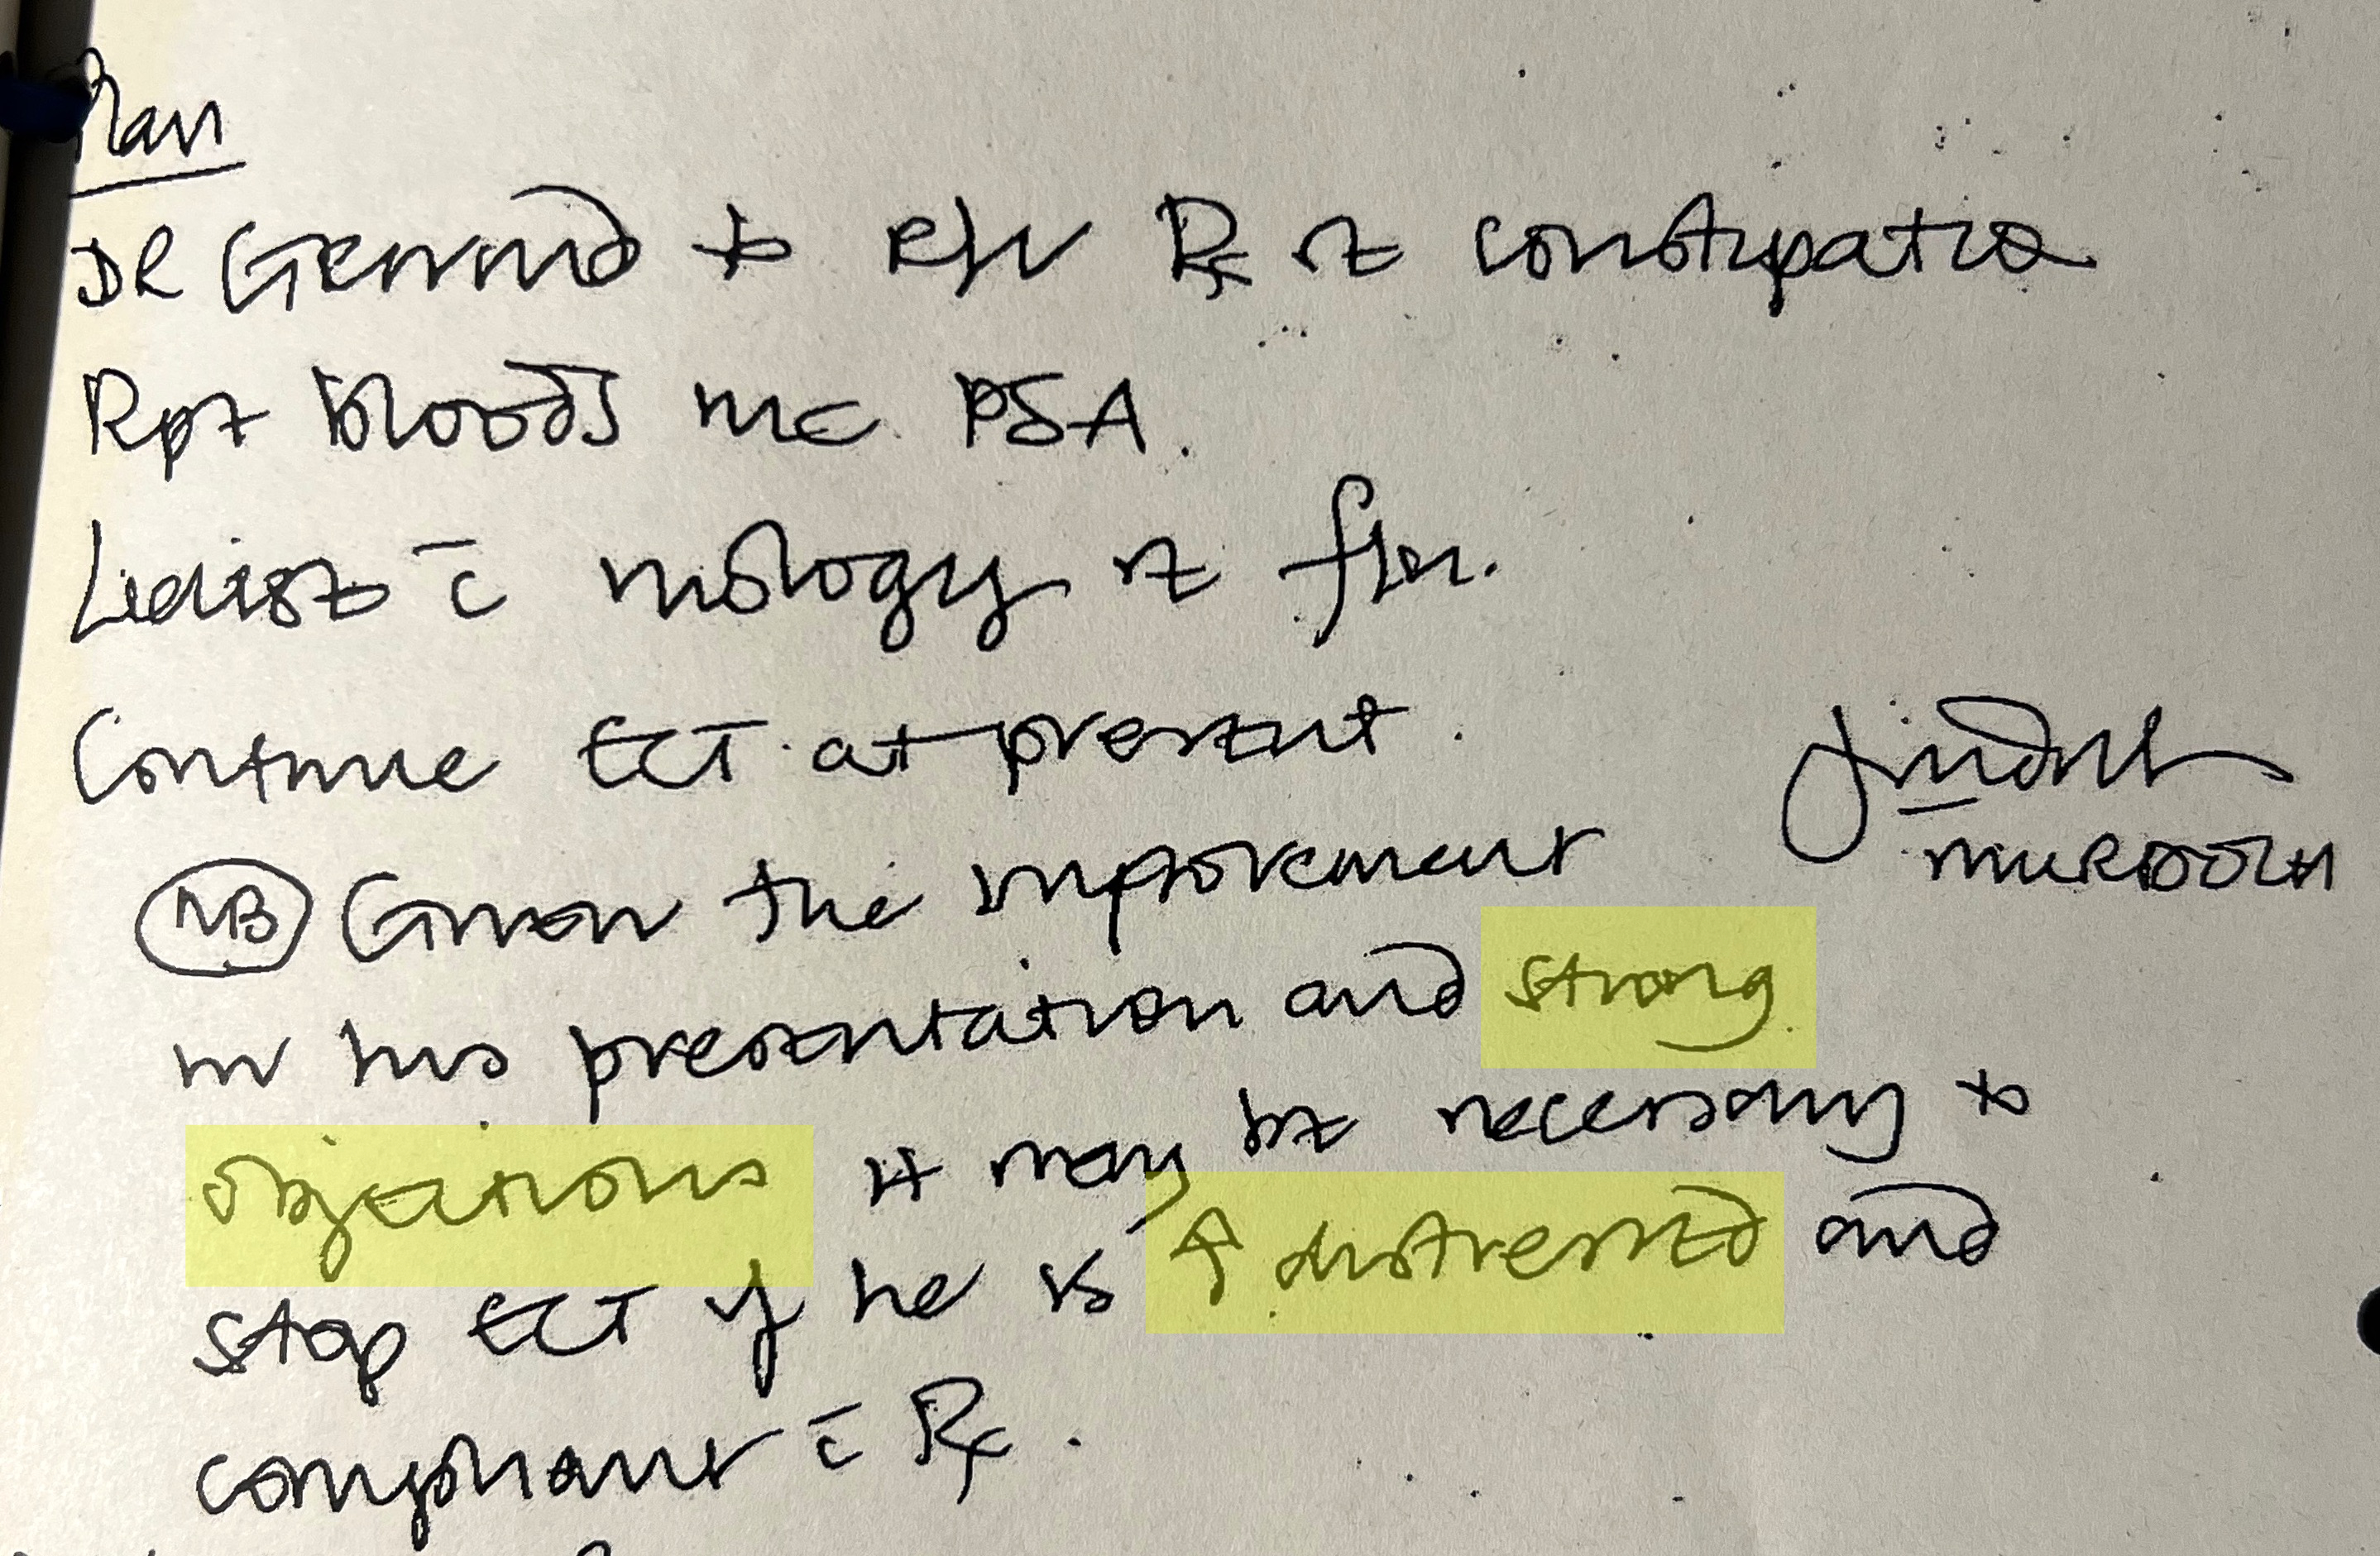 Plan
DR Gerrard to r/v Rx re constipation
Rpt bloods inc PSA.
Liaise c̄ urology re f/u.
Continue ECT at present.
MURDOCH
NB Given the improvement
in his presentation and strong
objections it may be necessary to
stop ECT if he is ↑ distressed and
compliant c̄ Rx.